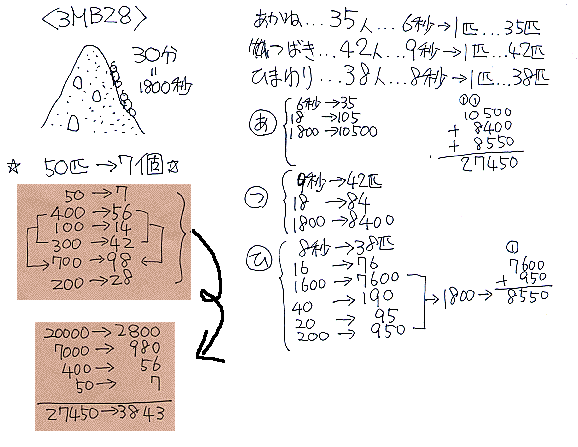 〈3MB28〉
30分
=
1800秒
☆ 50匹→7個☆
50→7
400→56
100→14
300→42
700→98
200→28
20000→2800
7000→980
400→56
50→7
27450→3843
あかね…35人…6秒→1匹…35匹
つばき…42人…9秒→1匹…42匹
ひまわり…38人…8秒→1匹…38匹
あ
6秒→35
18→105
1800→10500
①①
10500
+ 8400
+ 8550
27450
つ
9秒→42匹
18→84
1800→8400
ひ
8秒→38匹
16→76
1600→7600
40→190
20→95
200→950
→1800→
①
7600
+ 950
8550